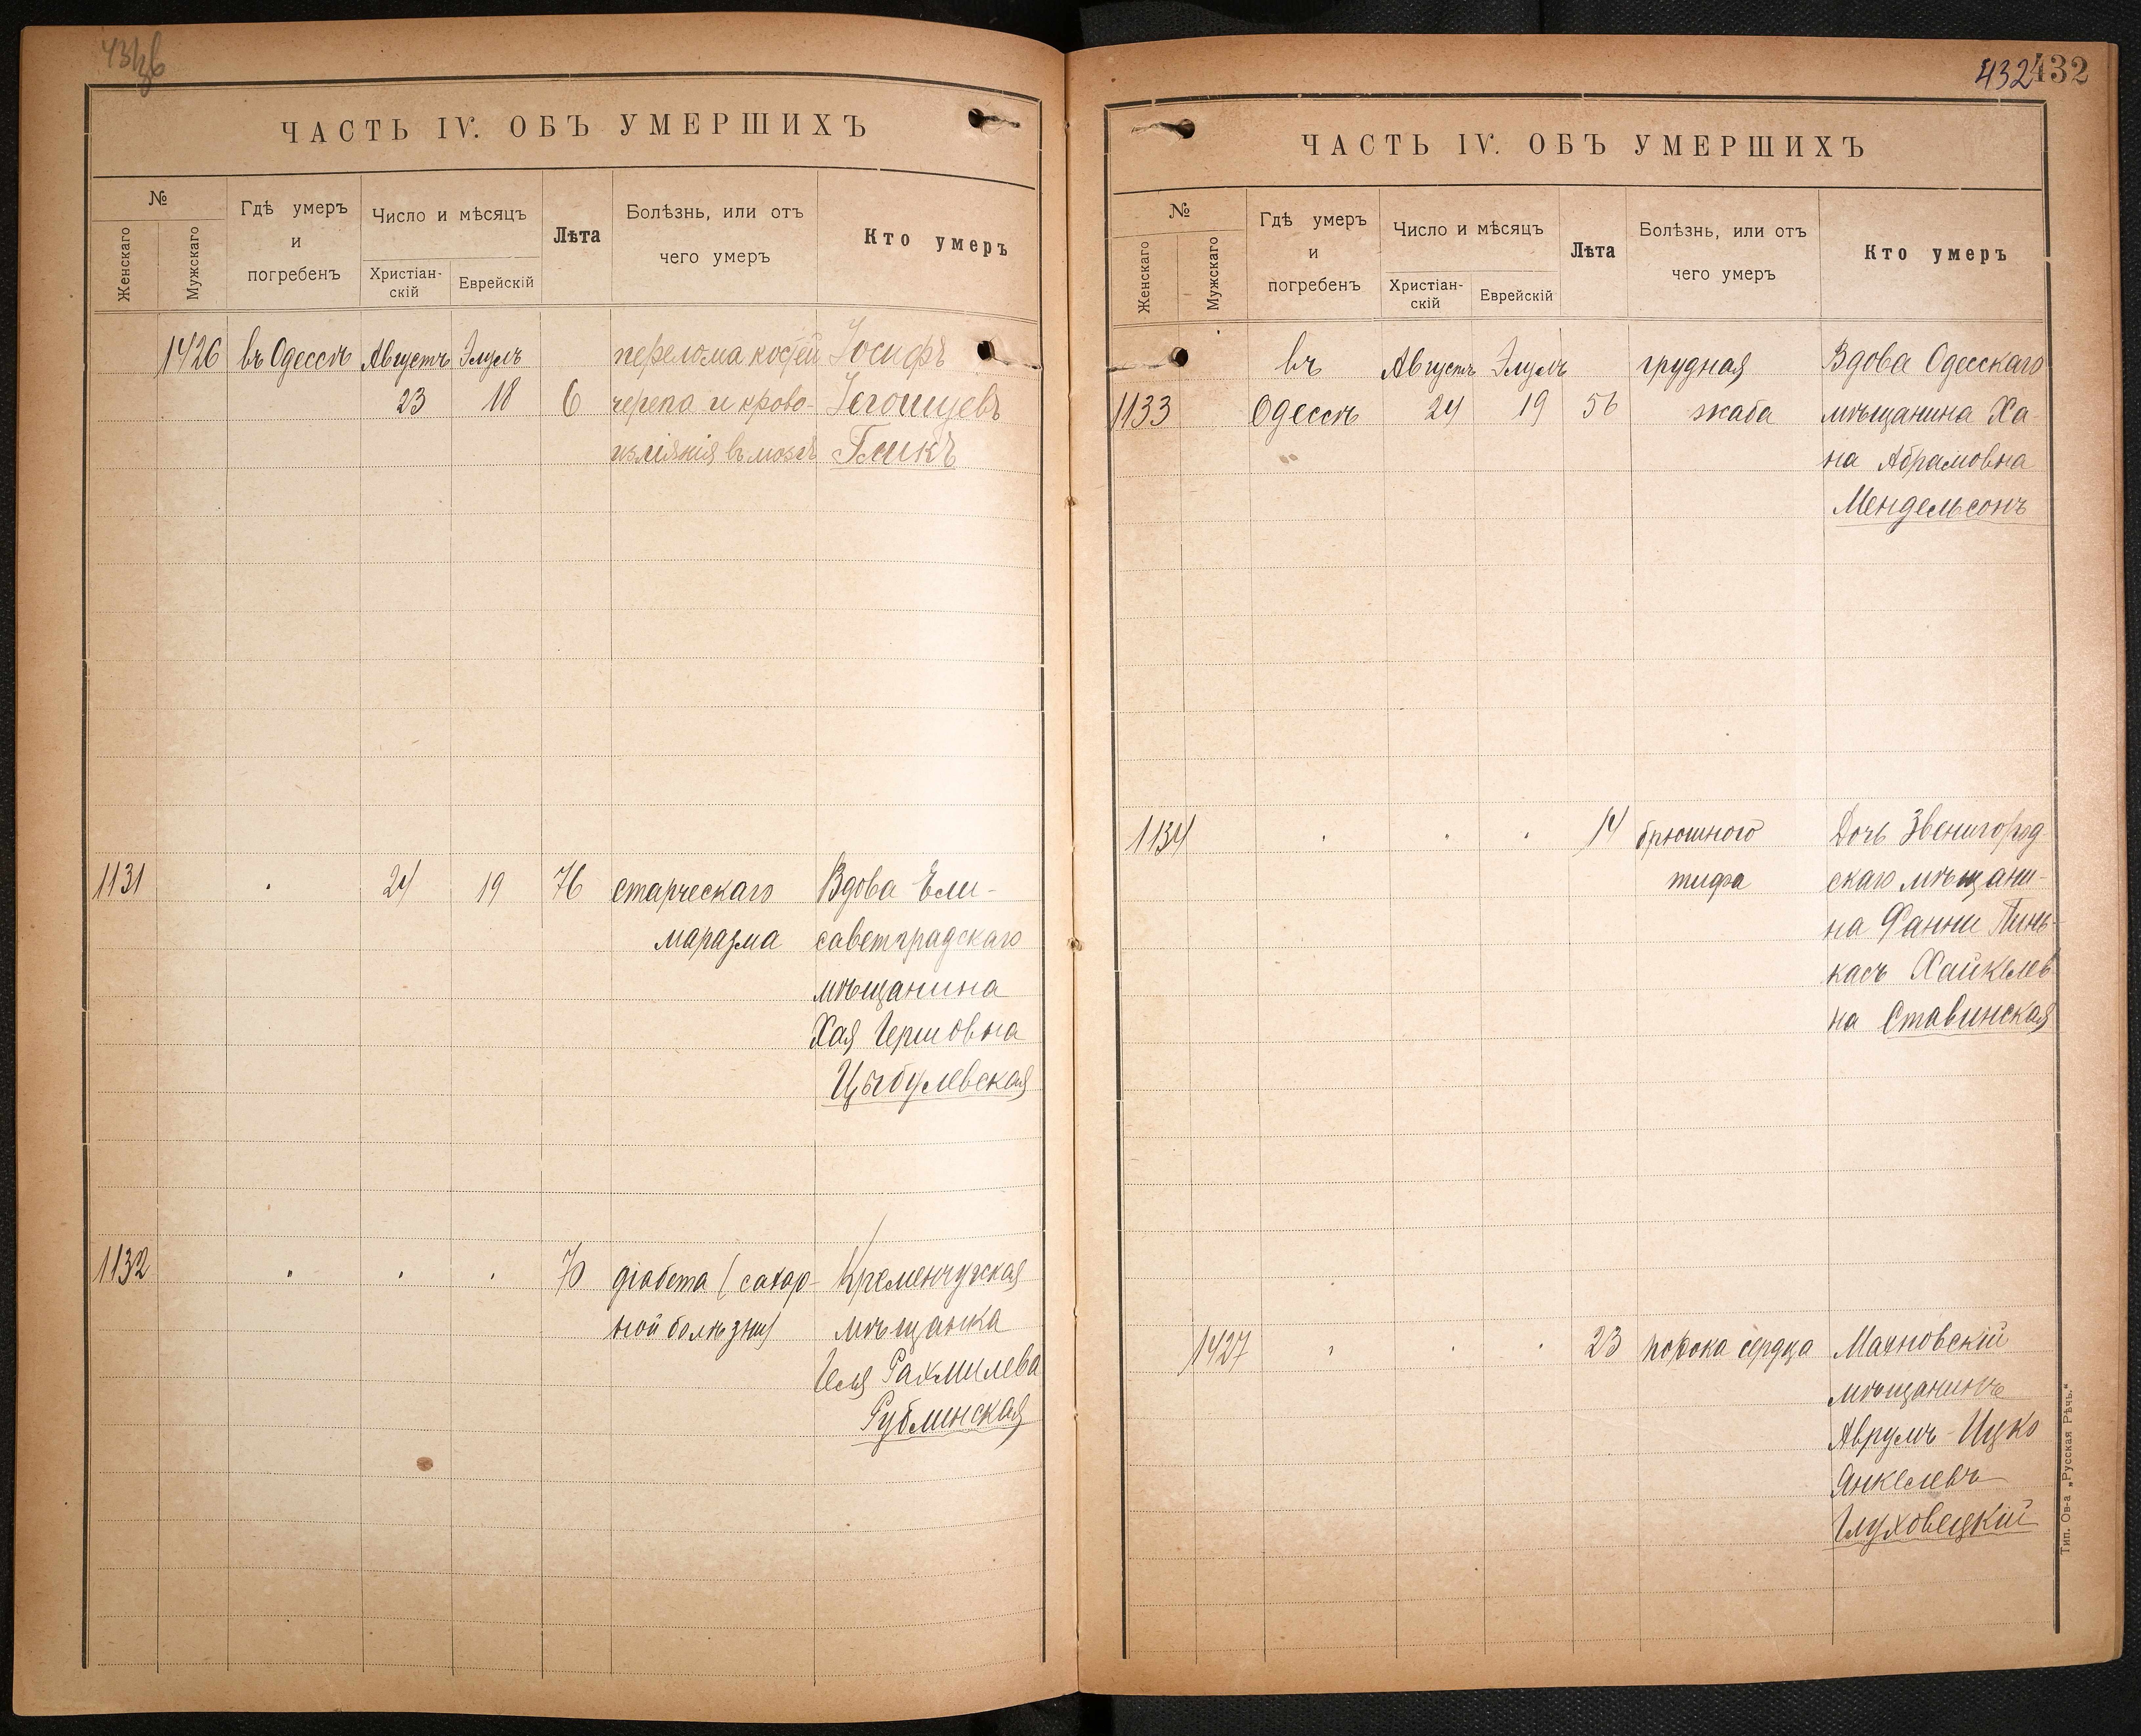 ЧАСТЬ IV. ОБЪ УМЕРШИХЪ
№
Женскаго
Мужскаго
Гдѣ умеръ
и
погребенъ
Число и мѣсяцъ
Христіан-
скій
Еврейскій
Лѣта
Болѣзнь, или отъ
чего умеръ
Кто умеръ
1426 въ Одессѣ Августъ Элулъ перелома костей Іосифъ
23 18 6 черепа и крово- Іегошуевъ
изліянія въ мозгъ Гликъ
1131 " 24 19 76 старческаго Вдова Ели-
маразма саветградскаго
мѣщанина
Хая Гершовна
Цыбулевская
1132 " " " 70 діабета (сахар- Кременчугская
ной болѣзни) мѣщанка
Рахмилева
Рублинская
432 432
ЧАСТЬ IV. ОБЪ УМЕРШИХЪ
№
Женскаго
Мужскаго
Гдѣ умеръ
и
погребенъ
Число и мѣсяцъ
Христіан-
скій
Еврейскій
Лѣта
Болѣзнь, или отъ
чего умеръ
Кто умеръ
въ Августъ Элулъ грудная Вдова Одесскаго
1133 Одессѣ 24 19 56 жаба мѣщанина Ха-
на Абрамовна
Мендельсонъ
1134 " " " 14 брюшного Дочь Звенигород-
тифа скаго мѣщани-
на Фанни Пинь-
касъ Хайкелев
на Ставинская
1427 " " " 23 порока сердца Махновскій
мѣщанинъ
Аврумъ-Ицко
Янкелевъ
Глуховецкій
Тип. Ов-а „Русская Рѣчь."